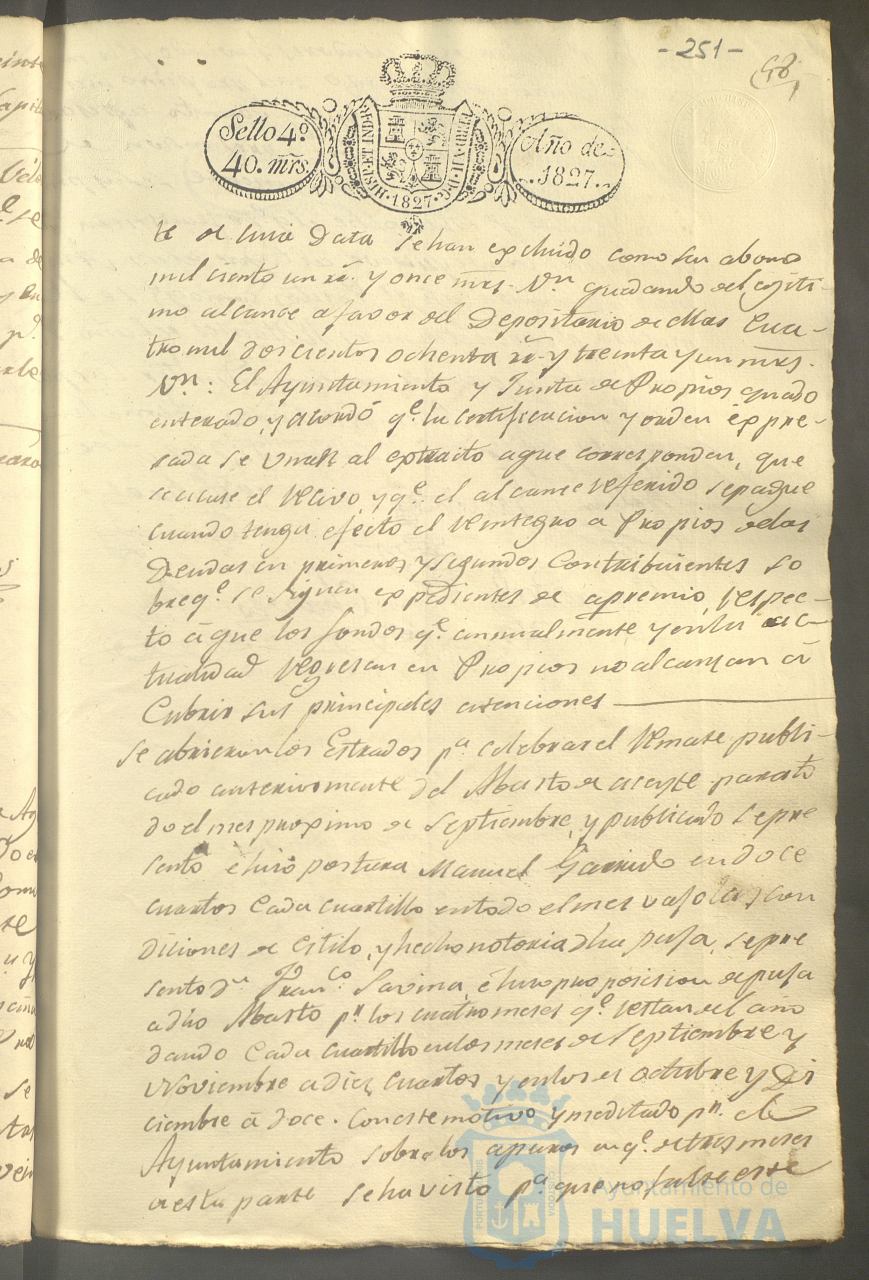 - 251 -
68
Sello 4º
40. mrs.
HISP. ET IND. R.
FERD. VII. D. G.
1827
Año de
1827.
te de cuia Data se han excluido como sin abono
mil ciento un rr. y once mrs. Vn quedando el legiti-
mo alcance a favor del Depositario de ellas Cua-
tro mil doscientos ochenta rr. y treinta y un mrs.
Vn: El Ayuntamiento y Junta de Propios quedó
enterado, y acordó qe. la certificacion y orden expre-
sada se unan al extracto aque corresponden, que
se acuse el recivo y qe. el alcance referido se pague
cuando tenga efecto el reintegro a Propios de las
Deudas en primeros y segundos Contribuientes so
breqe. se siguen expedientes de apremio, respec-
to áque los fondos qe. annualmente y en la ac-
tualidad ingresan en Propios no alcanzan á
Cubrir sus principales atenciones
Se abrieron los Estrados pa. celebrar el remate publi-
cado anteriormente del Abasto de aceyte para to
do el mes proximo de Septiembre, y publicado se pre
sentó é hiso postura Manuel Garrido en doce
cuartos cada cuartillo en todo el mes vajo las con
diciones de estilo, y hecho notoria dha puja, se pre
sentó Dn. Franco. Savina, é hiso proposicion de puja
a dho Abasto pr. los cuatro meses qe. restan del año
dando cada cuartillo en los meses de Septiembre y
Noviembre a diez cuartos y en los de octubre y Di
ciembre á doce. Con este motivo y meditado pr. el
Ayuntamiento sobre los apuros en qe. de tres meses
a esta parte se ha visto pa. que no falte este
Ayuntamiento de
HUELVA